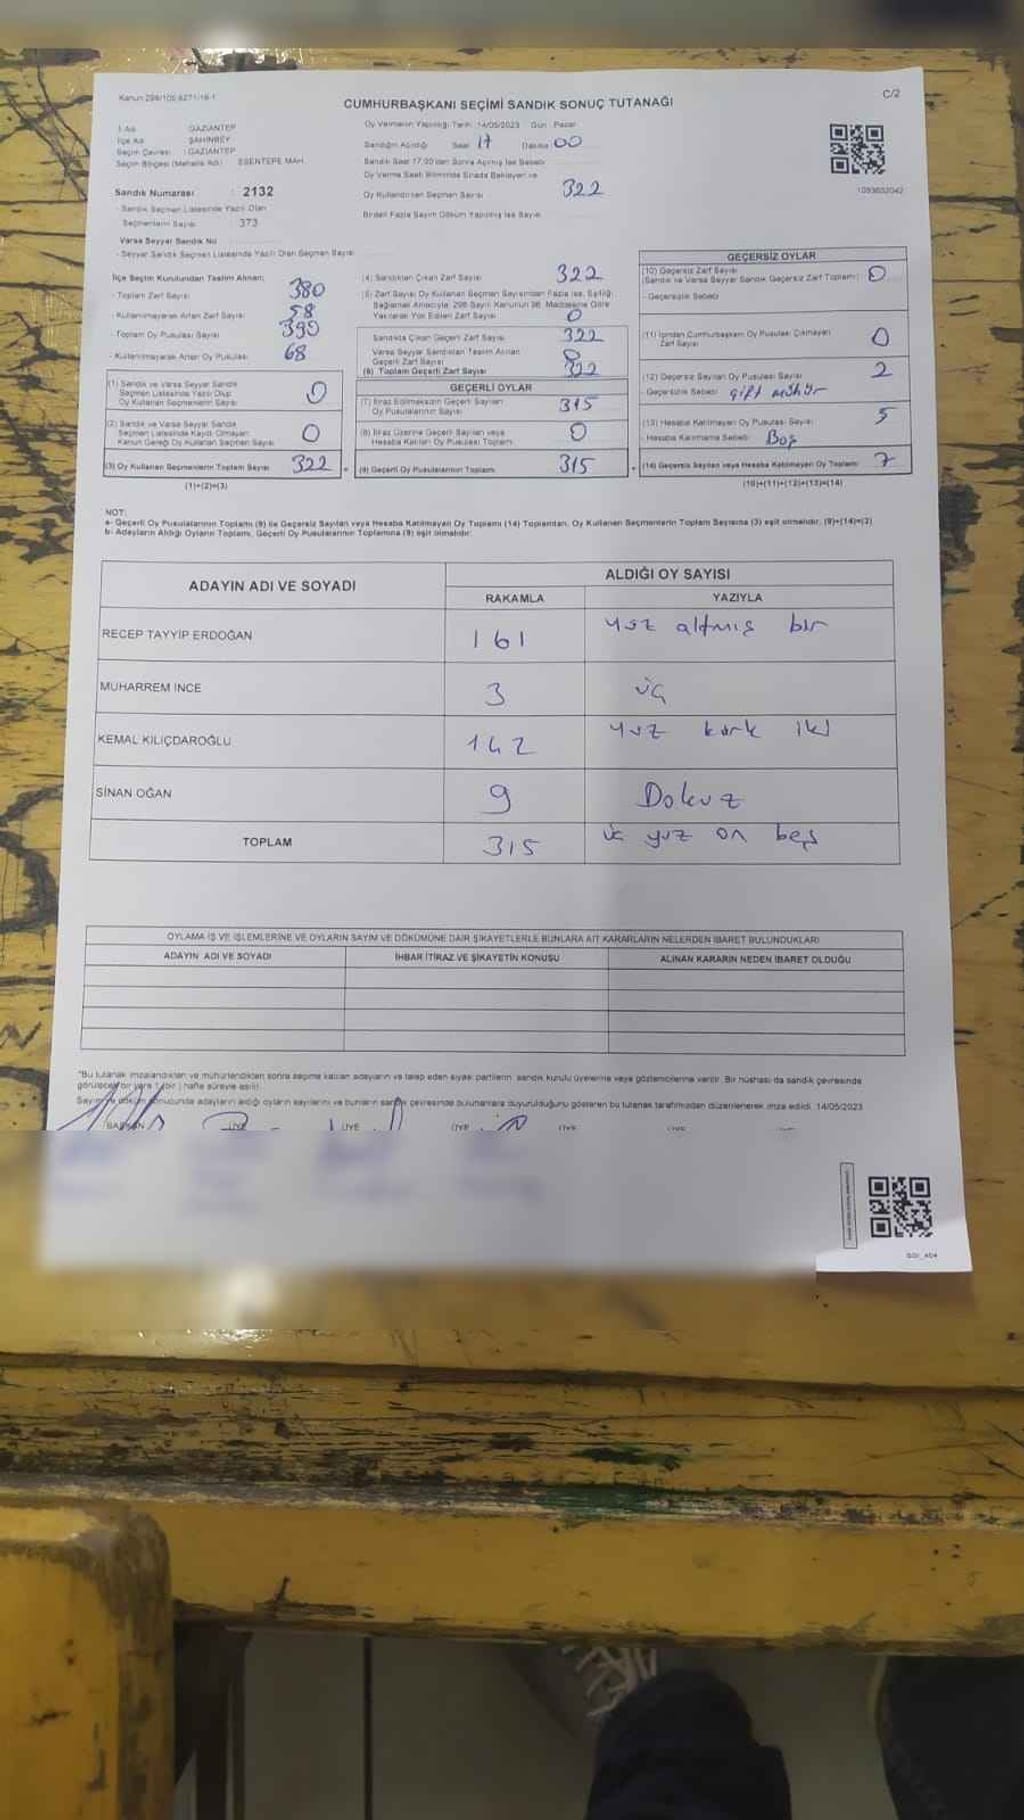 Kanun 298/105 6271/18-1
CUMHURBAŞKANI SEÇİMİ SANDIK SONUÇ TUTANAĞI
C/2
İl Adı : GAZİANTEP
İlçe Adı : ŞAHİNBEY
Seçim Çevresi : GAZİANTEP
Seçim Bölgesi (Mahalle Adı) : ESENTEPE MAH.
Sandık Numarası : 2132
- Sandık Seçmen Listesinde Yazılı Olan
Seçmenlerin Sayısı : 373
Varsa Seyyar Sandık No
- Seyyar Sandık Seçmen Listesinde Yazılı Olan Seçmen Sayısı
Oy Vermenin Yapıldığı Tarih: 14/05/2023 Gün : Pazar
Sandığın Açıldığı Saat 17 Dakika 00
Sandık Saat 17.00'dan Sonra Açılmış İse Sebebi
Oy Verme Saati Bitiminde Sırada Bekleyen ve
Oy Kullandırılan Seçmen Sayısı 322
Birden Fazla Sayım Döküm Yapılmış İse Sayısı
1093602042
İlçe Seçim Kurulundan Teslim Alınan:
- Toplam Zarf Sayısı 380
- Kullanılmayarak Artan Zarf Sayısı 58
- Toplam Oy Pusulası Sayısı 390
- Kullanılmayarak Artan Oy Pusulası 68
(1) Sandık ve Varsa Seyyar Sandık
Seçmen Listesinde Yazılı Olup
Oy Kullanan Seçmenlerin Sayısı 0
(2) Sandık ve Varsa Seyyar Sandık
Seçmen Listesinde Kaydı Olmayan
Kanun Gereği Oy Kullanan Seçmen Sayısı 0
(3) Oy Kullanan Seçmenlerin Toplam Sayısı 322
(1)+(2)=(3)
(4) Sandıktan Çıkan Zarf Sayısı 322
(5) Zarf Sayısı Oy Kullanan Seçmen Sayısından Fazla ise, Eşitliği
Sağlamak Amacıyla, 298 Sayılı Kanunun 98. Maddesine Göre
Yakılarak Yok Edilen Zarf Sayısı 0
Sandıkta Çıkan Geçerli Zarf Sayısı 322
Varsa Seyyar Sandıktan Teslim Alınan
Geçerli Zarf Sayısı
(6) Toplam Geçerli Zarf Sayısı 322
GEÇERLİ OYLAR
(7) İtiraz Edilmeksizin Geçerli Sayılan
Oy Pusulalarının Sayısı 315
(8) İtiraz Üzerine Geçerli Sayılan veya
Hesaba Katılan Oy Pusulası Toplamı 0
(9) Geçerli Oy Pusulalarının Toplamı 315
GEÇERSİZ OYLAR
(10) Geçersiz Zarf Sayısı
(Sandık ve Varsa Seyyar Sandık Geçersiz Zarf Toplamı) 0
- Geçersizlik Sebebi
(11) İçinden Cumhurbaşkanı Oy Pusulası Çıkmayan
Zarf Sayısı 0
(12) Geçersiz Sayılan Oy Pusulası Sayısı 2
- Geçersizlik Sebebi gift mühür
(13) Hesaba Katılmayan Oy Pusulası Sayısı 5
Hesaba Katılmama Sebebi Boş
(14) Geçersiz Sayılan veya Hesaba Katılmayan Oy Toplamı 7
(10)+(11)+(12)+(13)=(14)
NOT:
a- Geçerli Oy Pusulalarının Toplamı (9) ile Geçersiz Sayılan veya Hesaba Katılmayan Oy Toplamı (14) Toplamları, Oy Kullanan Seçmenlerin Toplam Sayısına (3) eşit olmalıdır. (9)+(14)=(3)
b- Adayların Aldığı Oyların Toplamı, Geçerli Oy Pusulalarının Toplamına (9) eşit olmalıdır.
ADAYIN ADI VE SOYADI
ALDIĞI OY SAYISI
RAKAMLA YAZIYLA
RECEP TAYYİP ERDOĞAN 161 yüz altmış bir
MUHARREM İNCE 3 üç
KEMAL KILIÇDAROĞLU 142 yüz kırk iki
SİNAN OĞAN 9 Dokuz
TOPLAM 315 üç yüz on beş
OYLAMA İŞ VE İŞLEMLERİNE VE OYLARIN SAYIM VE DÖKÜMÜNE DAİR ŞİKAYETLERLE BUNLARA AİT KARARLARIN NELERDEN İBARET BULUNDUKLARI
ADAYIN ADI VE SOYADI İHBAR İTİRAZ VE ŞİKAYETİN KONUSU ALINAN KARARIN NEDEN İBARET OLDUĞU
"Bu tutanak imzalandıktan ve mühürlendikten sonra seçime katılan adayların ve talep eden siyasi partilerin sandık kurulu üyelerine veya gözlemcilerine verilir. Bir nüshası da sandık çevresinde
görülecek bir yere 1 (bir) hafta süreyle asılır.
Sayım ve döküm sonucunda adayların aldığı oyların sayılarını ve bunların sandık çevresinde bulunanlara duyurulduğunu gösteren bu tutanak tarafımızdan düzenlenerek imza edildi. 14/05/2023
BAŞKAN ÜYE ÜYE ÜYE ÜYE